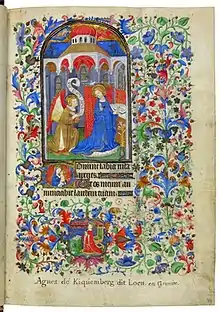 Domine labia mea
aperies
Et os meum an
nuntiabit laudem tuam
Agnes de Kiquemberg dit Loen. en Grande.